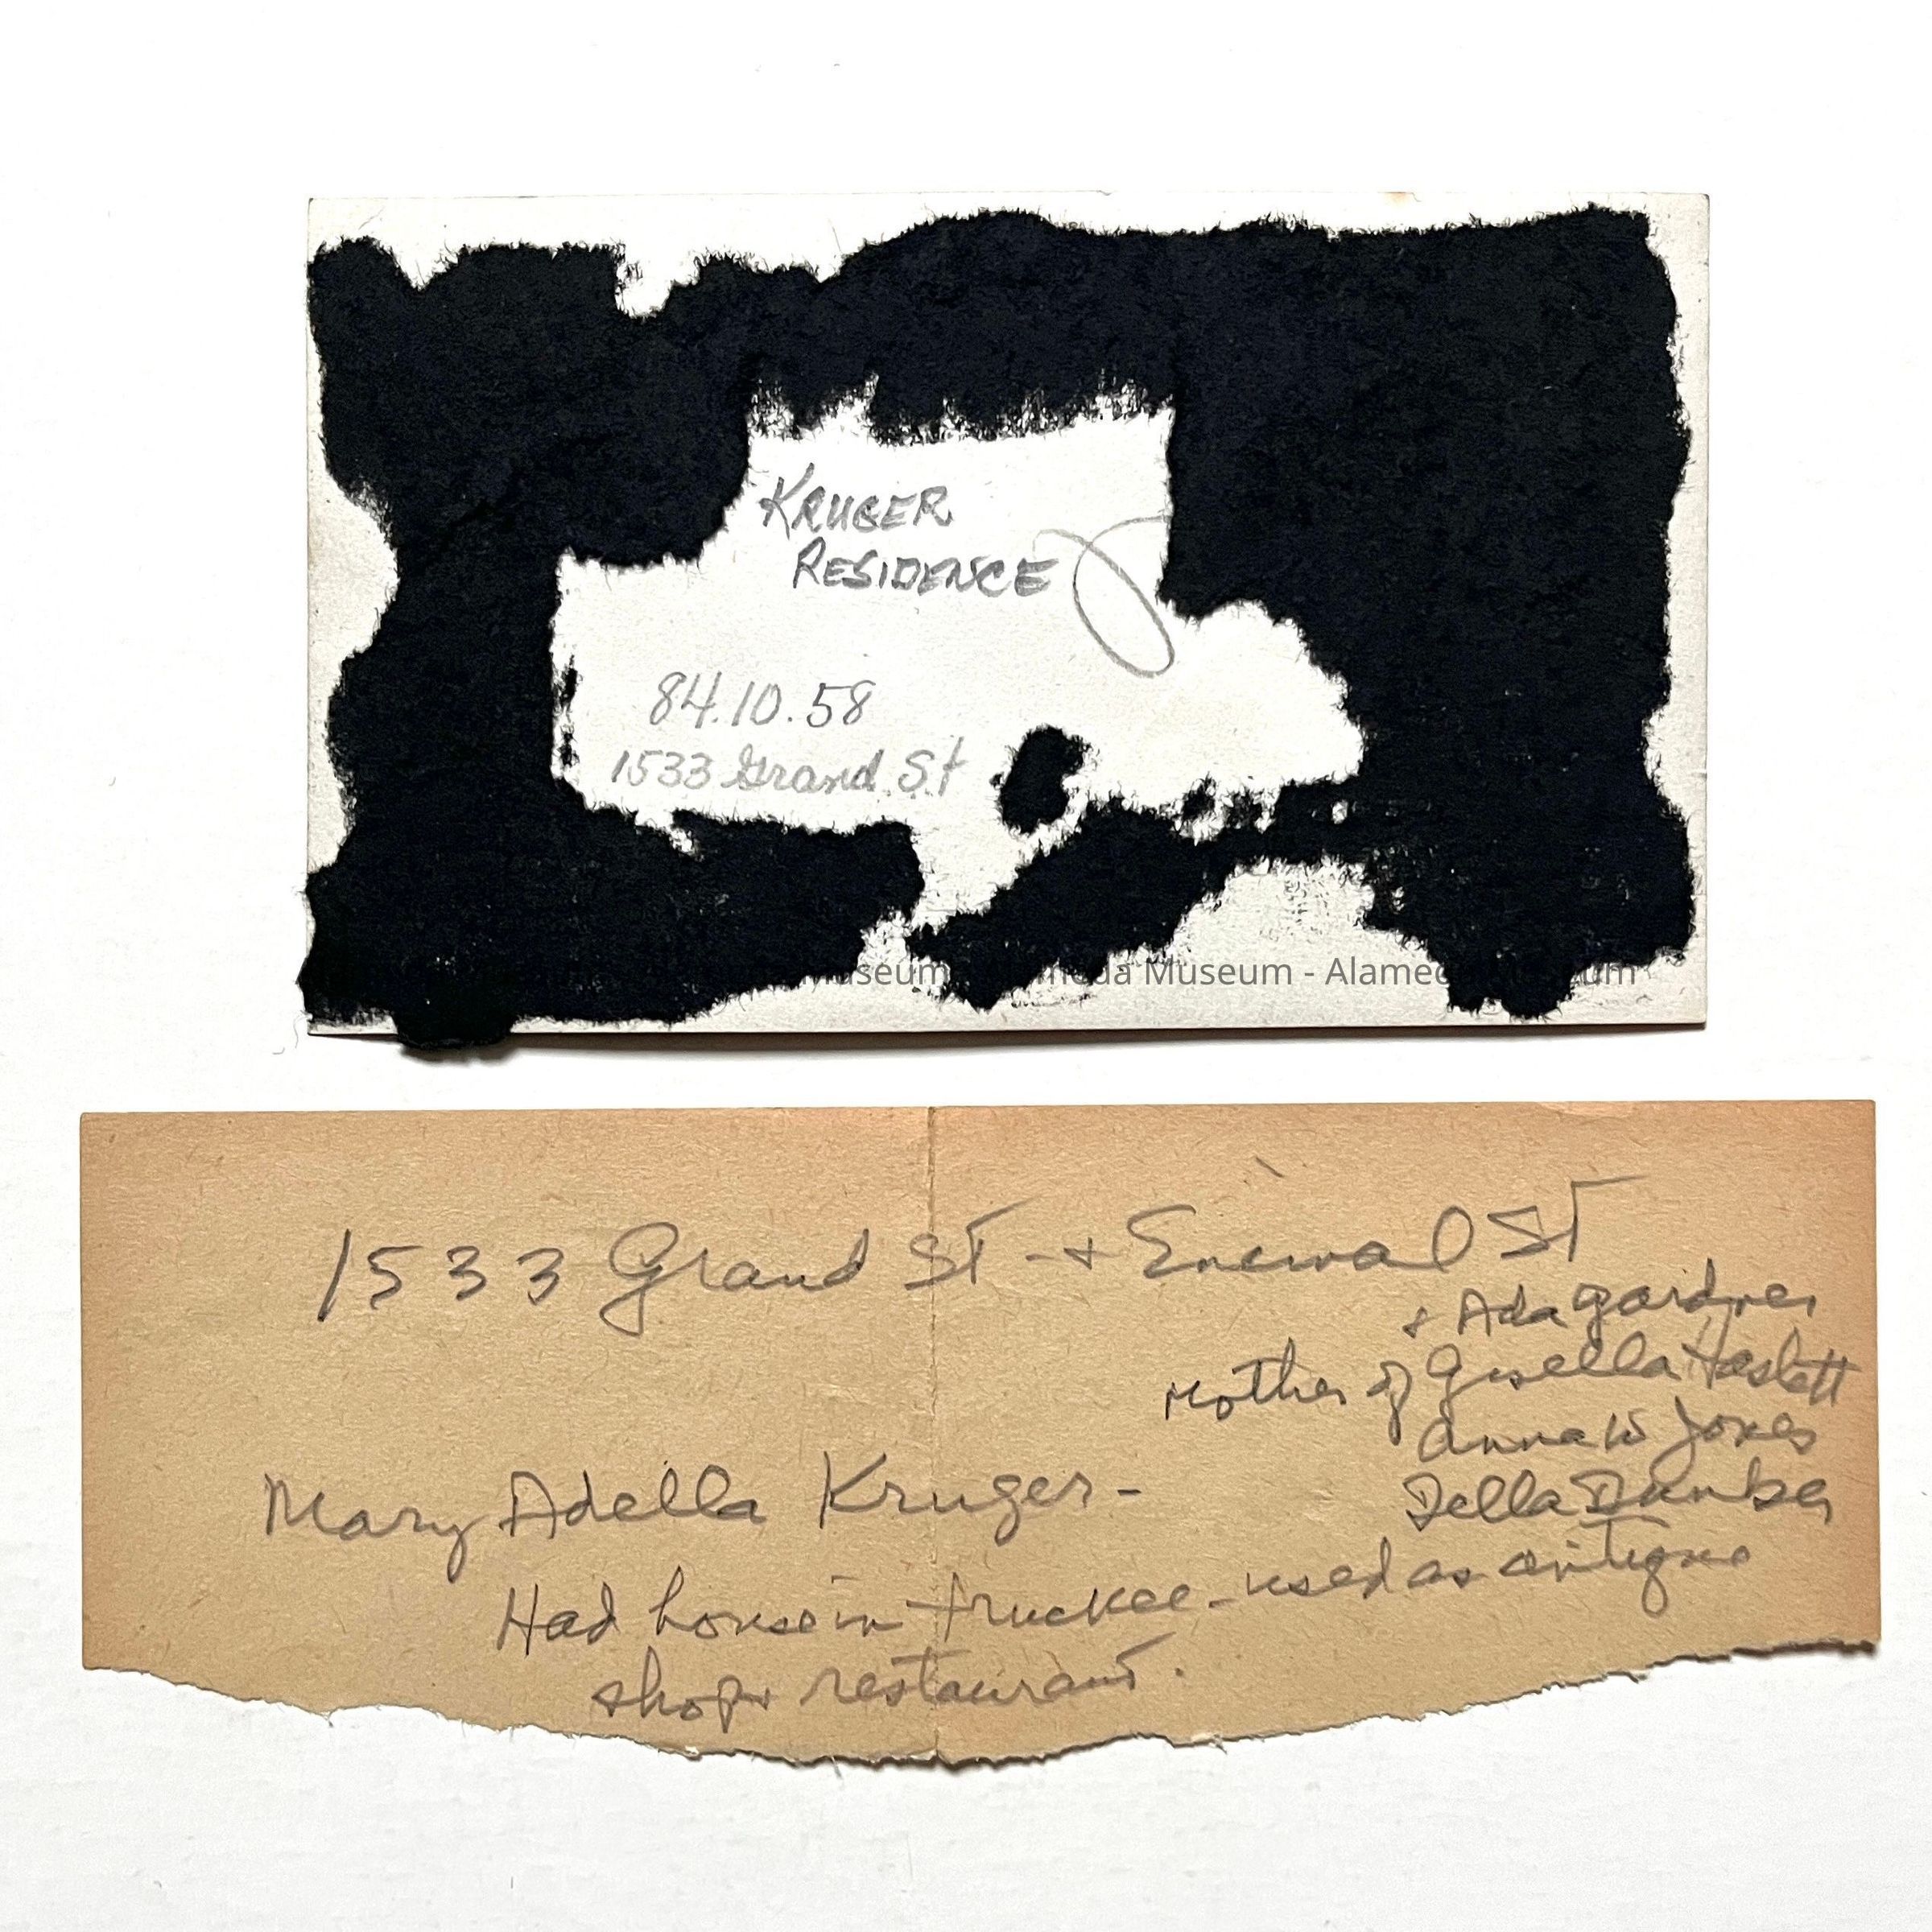 KRUGER
RESIDENCE
84.10.58
1533 Grand St
Museum - Alameda Museum - Alameda Museum
1533 Grand St - + Encinal St
+ Ada Gardner
Mother of Gisella Haslett
Anna W Jones
Mary Adella Kruger -
Della Dunbar
Had house in Truckee - used as antique
shop + restaurant.